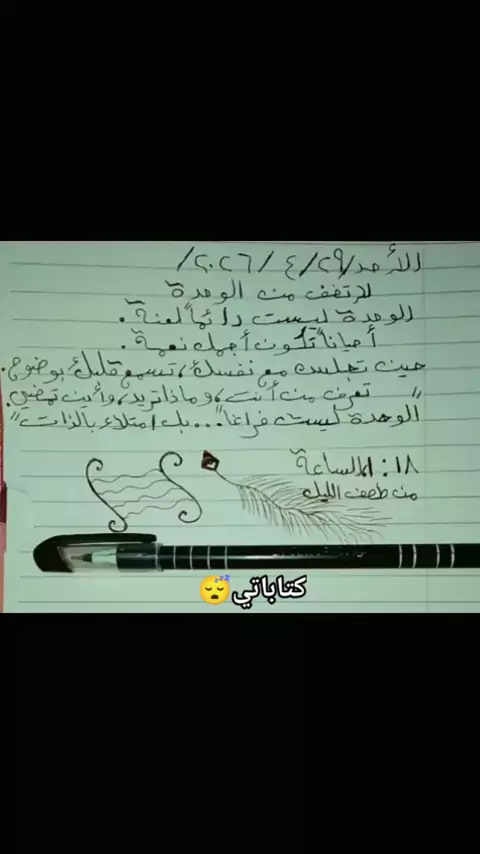 الأحد/٢٩/٤/٢٠٢٦/
لا تخف من الوحدة
الوحدة ليست دائماً لعنة.
أحياناً تكون أجمل نعمة.
حين تجلس مع نفسك، تسمع قلبك بوضوح.
تعرف من أنت، وماذا تريد، وأين تمضي.
"الوحدة ليست فراغاً... بل امتلاء بالذات"
١٨: الساعة
من الليل
كتاباتي😴